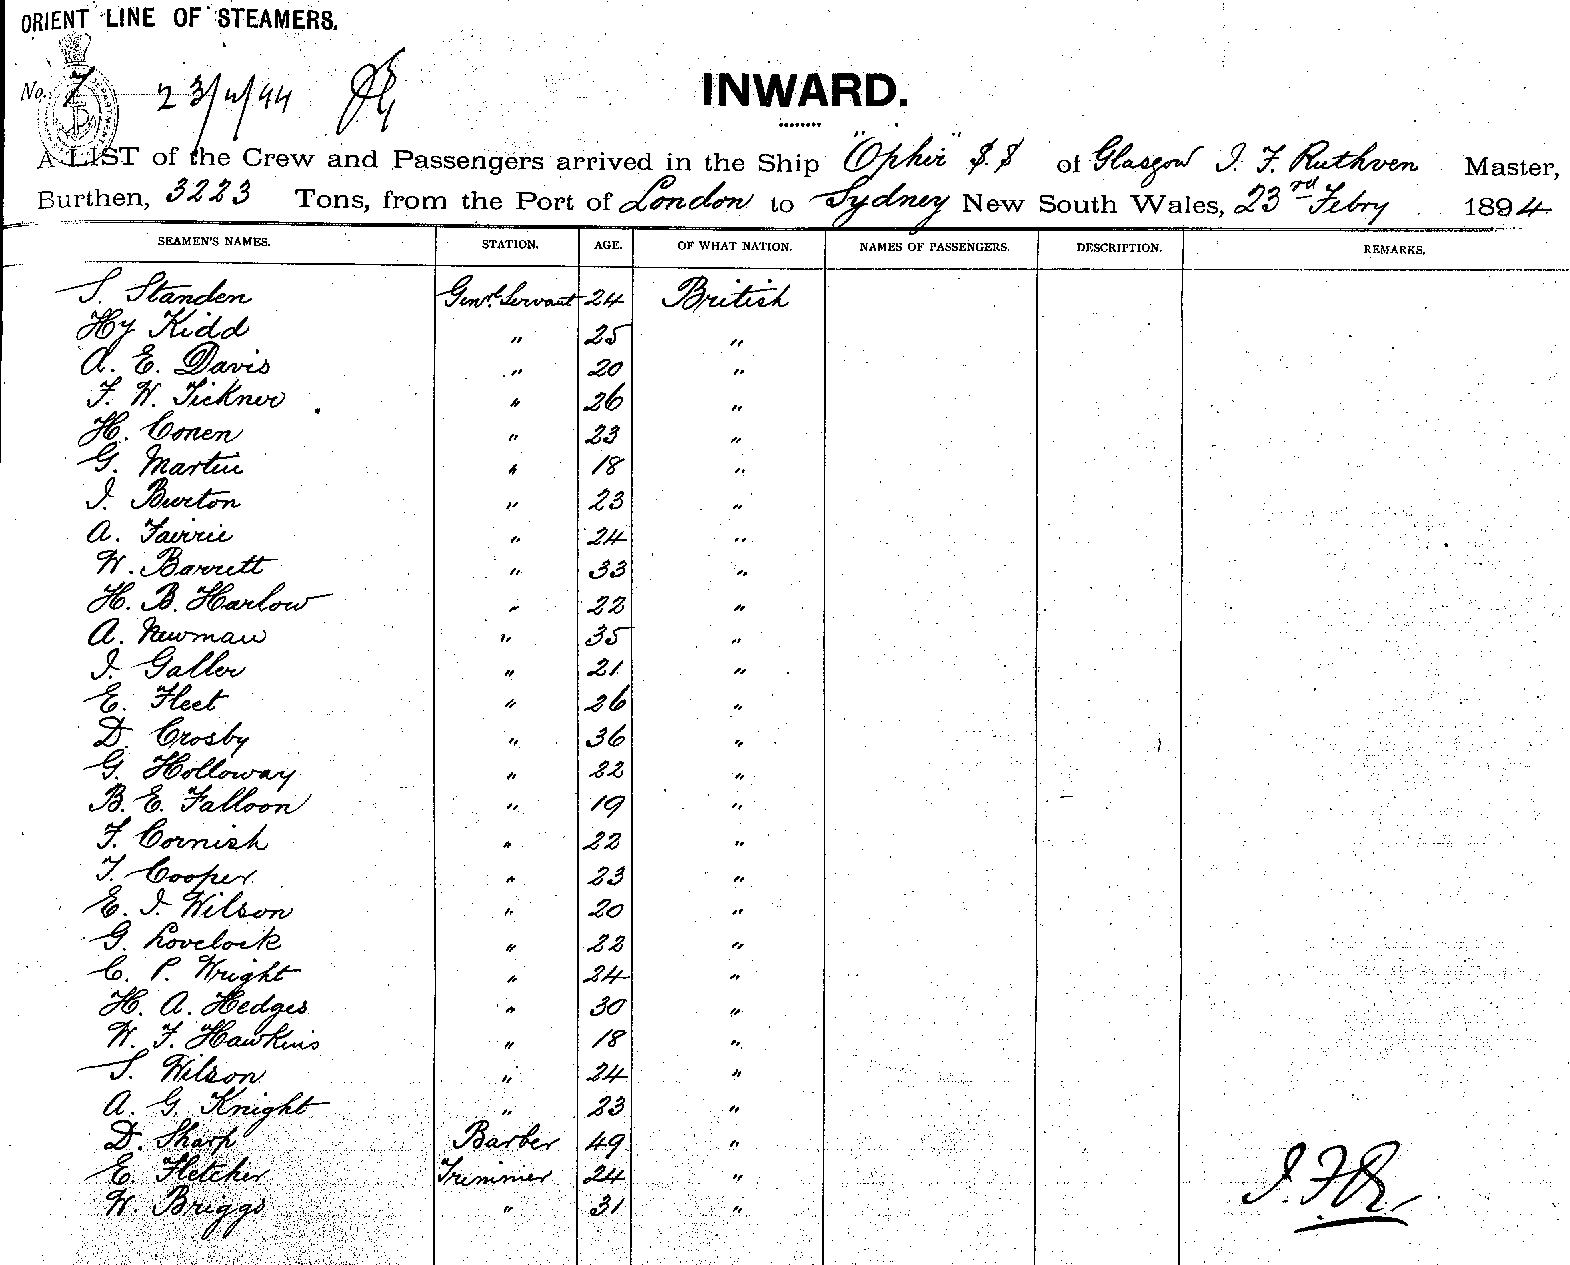 ORIENT LINE OF STEAMERS.
No. 7 23/2/94
INWARD.
A LIST of the Crew and Passengers arrived in the Ship "Ophir" S.S of Glasgow J. F. Ruthven Master,
Burthen, 3223 Tons, from the Port of London to Sydney New South Wales, 23rd Febry 1894
SEAMEN'S NAMES. STATION. AGE. OF WHAT NATION. NAMES OF PASSENGERS. DESCRIPTION. REMARKS.
S. Standen Genrl. Servant 24 British
Hy Kidd " 25 "
A. E. Davis " 20 "
F. W. Tickner " 26 "
H. Conen " 23 "
G. Martin " 18 "
J. Burton " 23 "
A. Fairrie " 24 "
W. Barrett " 33 "
H. B. Harlow " 22 "
A. Newman " 35 "
J. Galler " 21 "
E. Fleet " 26 "
D. Crosby " 36 "
G. Holloway " 22 "
B. E. Falloon " 19 "
F. Cornish " 22 "
T. Cooper " 23 "
E. J. Wilson " 20 "
G. Lovelock " 22 "
C. P. Wright " 24 "
H. A. Hedges " 30 "
W. F. Hawkins " 18 "
S. Wilson " 24 "
A. G. Knight " 23 "
D. Sharp Barber 49 "
E. Fletcher Trimmer 24 "
W. Briggs " 31 "
J.F.R.